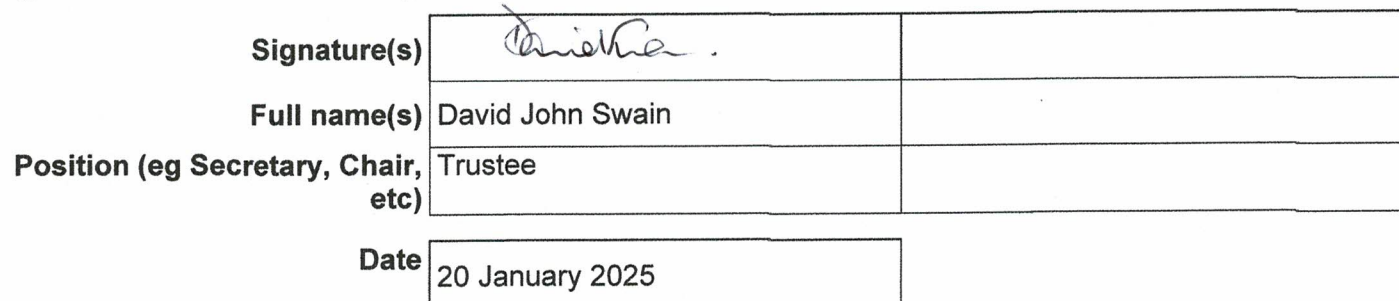 Signature(s)
Full name(s) David John Swain
Position (eg Secretary, Chair, Trustee
etc)
Date
20 January 2025